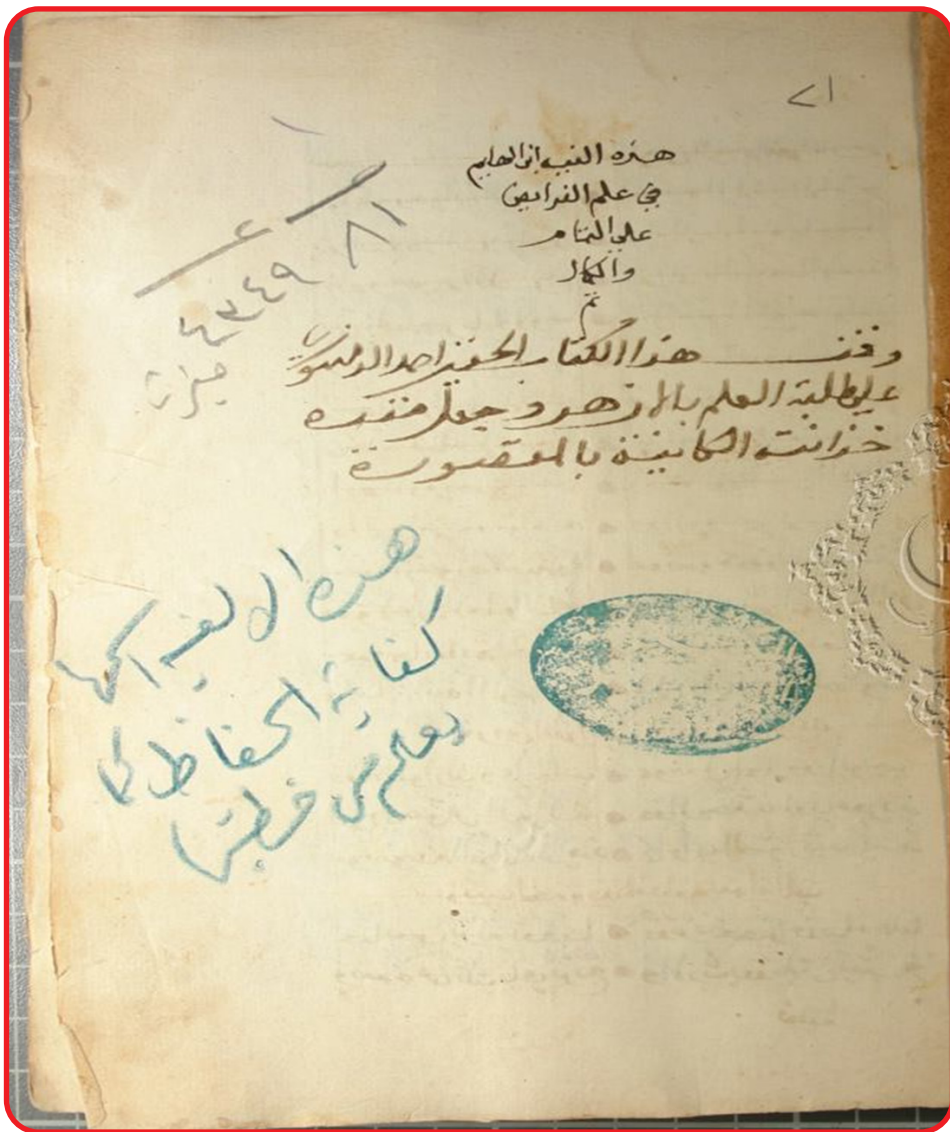 ٢١
هذه الفية ابن الهايم
في علم الفرايض
علي التمام
والكمال
تم
وقف هذا الكتاب الحقير احمد الدمنهوري
علي طلبة العلم بالازهر وجعل مقره
خزانته الكاينة بالمقصورة
٨١
٤٣٤٩
ميراث
هذه الالفيه اسمها
كفاية الحفاظ كما
يعلم من خطبتها